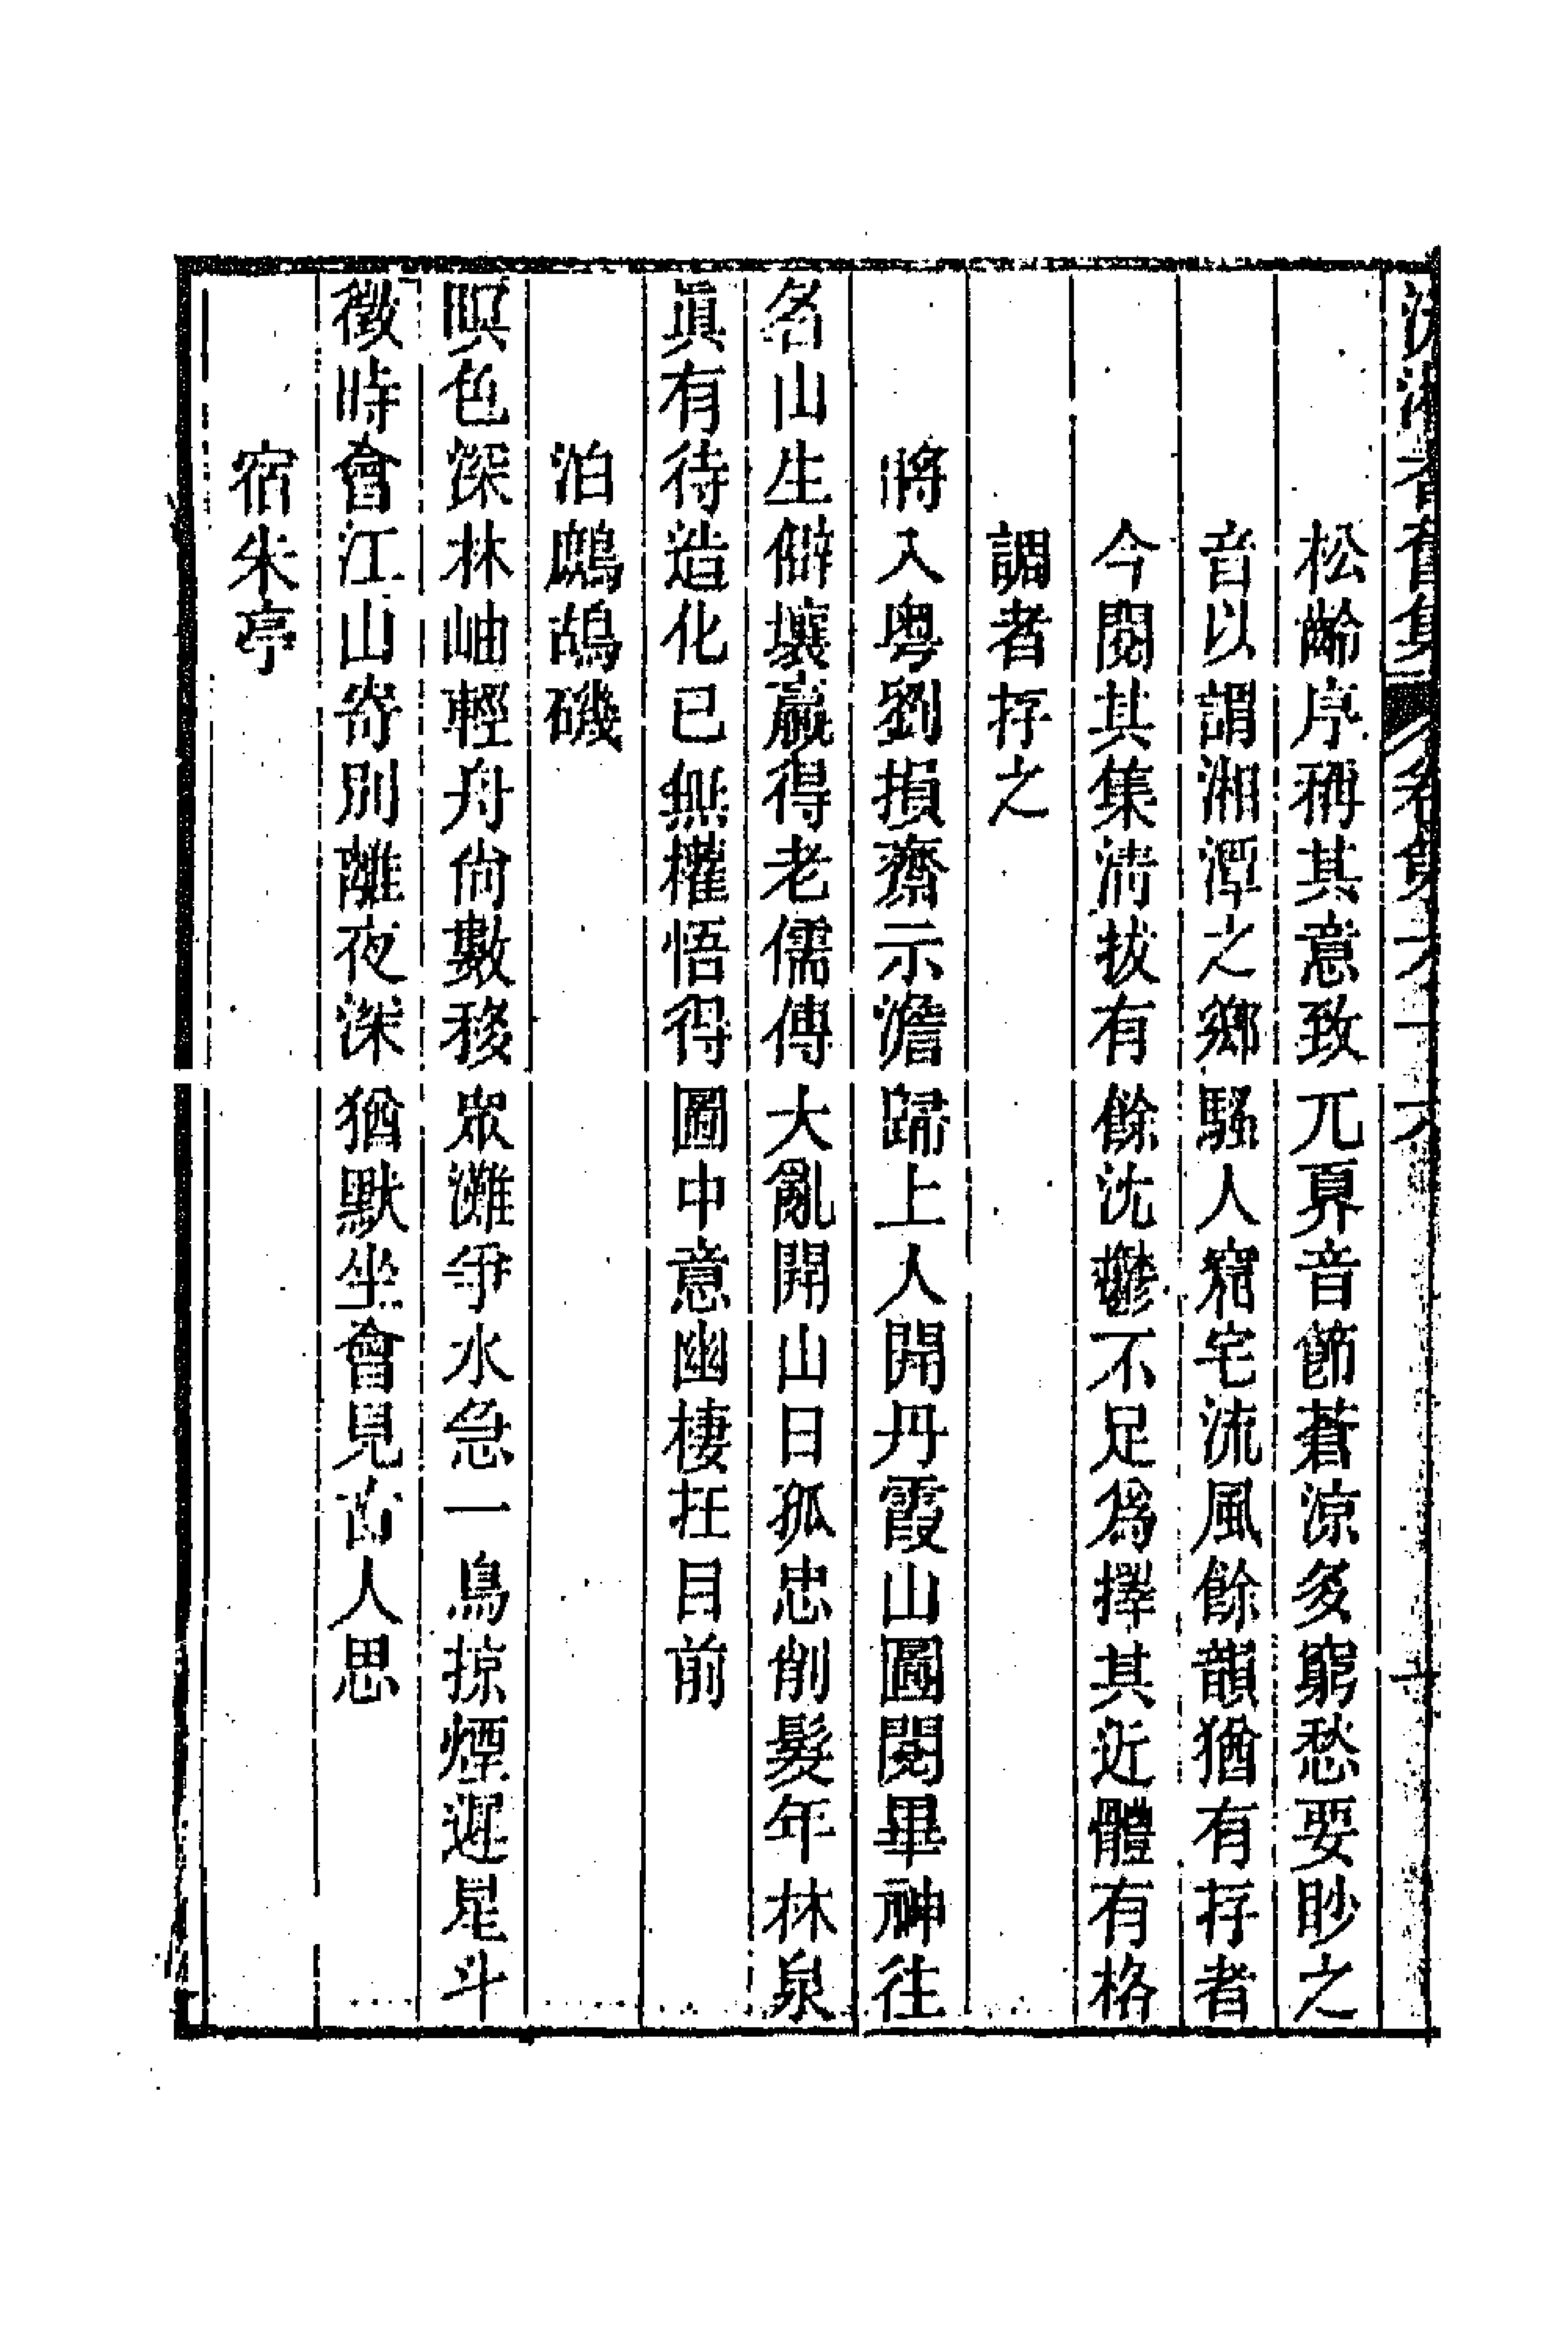 松齡序稱其意致兀奡音節蒼涼多窮愁要眇之
音以謂湘潭之鄉騷人窟宅流風餘韻猶有存者
今閱其集淸拔有餘沈鬱不足爲擇其近體有格
調者存之
將入粤劉損齋示澹歸上人開丹霞山圖閱畢神往
名山生僻壤羸得老儒傳大亂開山日孤忠削髮年林泉
眞有待造化已無權悟得圖中意幽棲在目前
泊鷓鴣磯
暝色深林岫輕舟尙數移眾灘爭水急一鳥掠煙遲星斗
徵時會江山寄別離夜深猶默坐會見古人思
宿朱亭